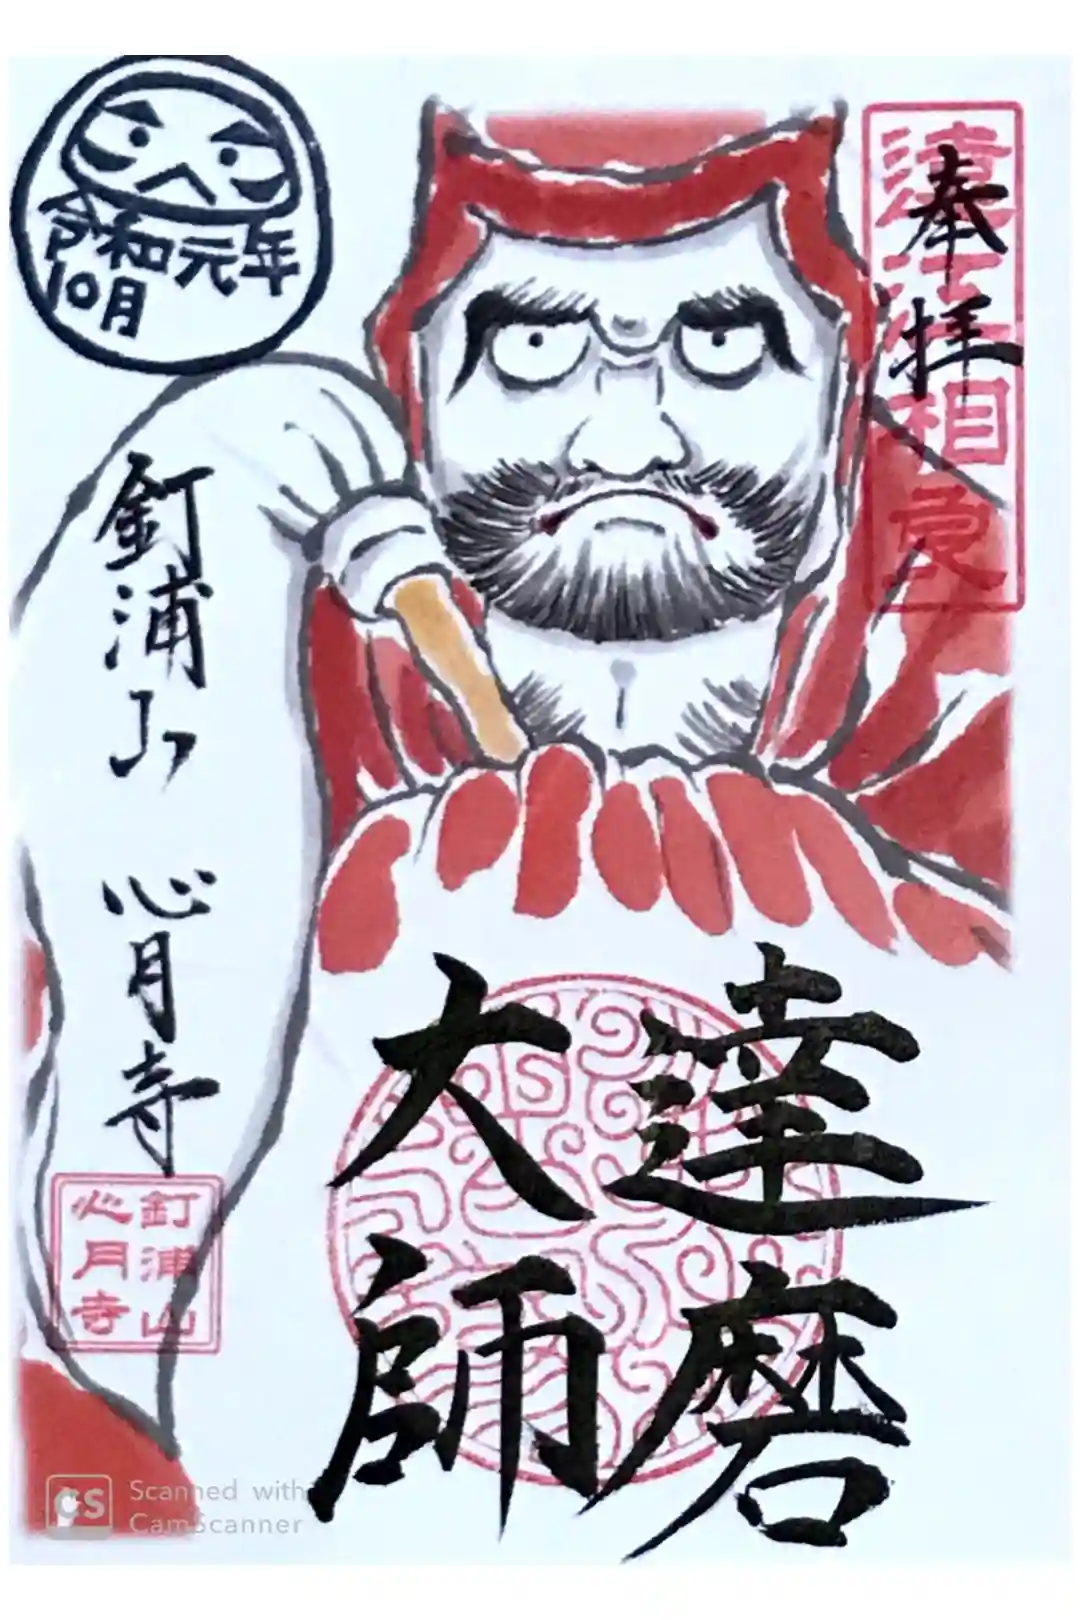 奉拝
遠江相良
達磨
大師
釘浦山 心月寺
釘浦山
心月寺
令和元年
10月
CS
Scanned with
CamScanner